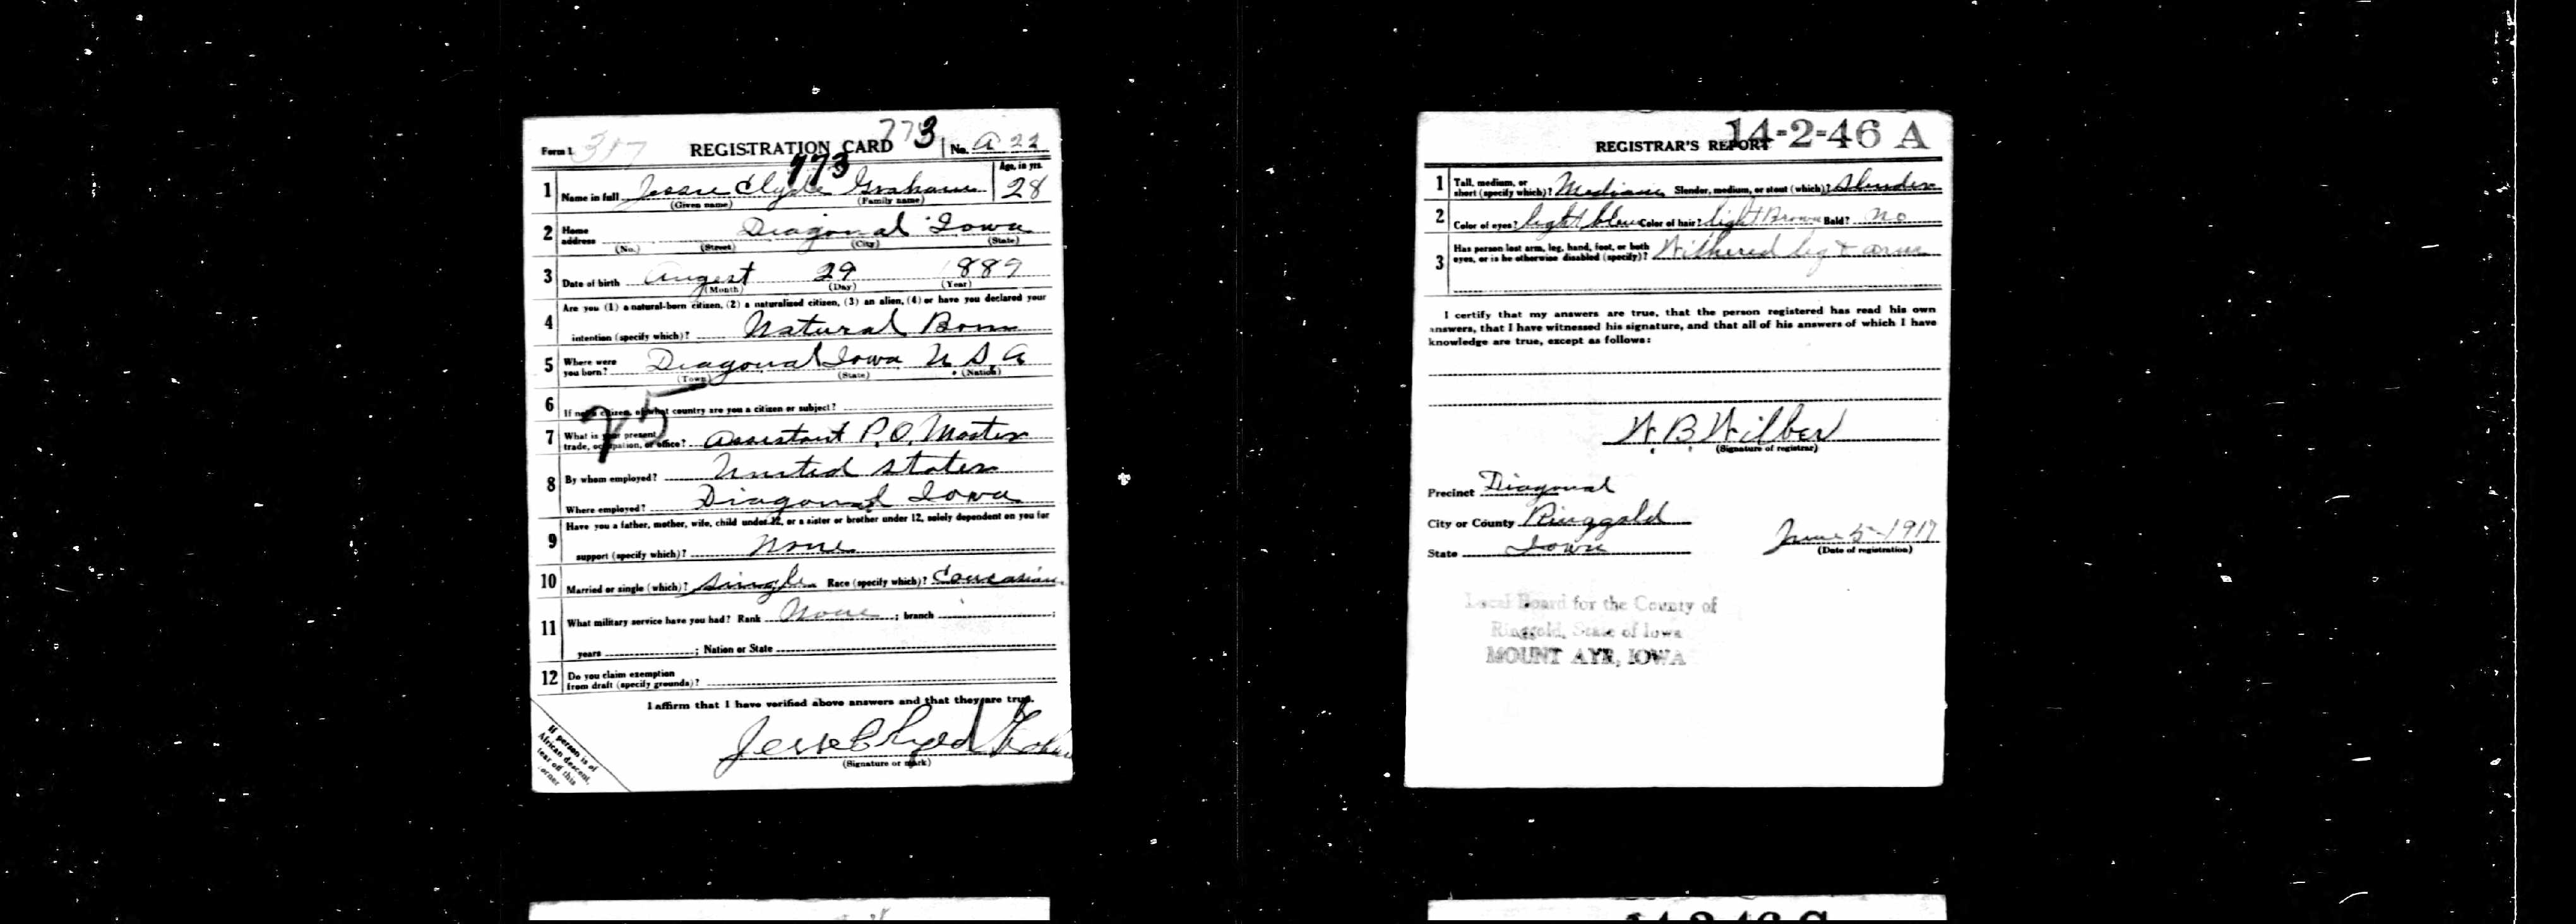 Form 1 317 REGISTRATION CARD 773 No. A 22
773
Age, in yrs.
1 Name in full Jessie Clyde Graham 28
(Given name) (Family name)
2 Home address Diagonal Iowa
(No.) (Street) (City) (State)
3 Date of birth Augest 29 1889
(Month) (Day) (Year)
4 Are you (1) a natural-born citizen, (2) a naturalized citizen, (3) an alien, (4) or have you declared your
intention (specify which)? Natural Born
5 Where were you born? Diagonal Iowa U S A
(Town) (State) (Nation)
6 If not a citizen, of what country are you a citizen or subject?
25
7 What is your present trade, occupation, or office? Assistant P.O. Master
8 By whom employed? United States
Where employed? Diagonal Iowa
9 Have you a father, mother, wife, child under 12, or a sister or brother under 12, solely dependent on you for
support (specify which)? None
10 Married or single (which)? Single Race (specify which)? Coucasian
11 What military service have you had? Rank None ; branch ;
years ; Nation or State
12 Do you claim exemption
from draft (specify grounds)?
I affirm that I have verified above answers and that they are true.
Jesse Clyde Graham
(Signature or mark)
If person is of
African descent,
tear off this
corner
14-2-46 A
REGISTRAR'S REPORT
1 Tall, medium, or short (specify which)? Medium Slender, medium, or stout (which)? Slender
2 Color of eyes? light blue Color of hair? light Brown Bald? No
3 Has person lost arm, leg, hand, foot, or both
eyes, or is he otherwise disabled (specify)? Withered leg & arm
I certify that my answers are true, that the person registered has read his own
answers, that I have witnessed his signature, and that all of his answers of which I have
knowledge are true, except as follows:
W B Wilber
(Signature of registrar)
Precinct Diagonal
City or County Ringgold
State Iowa
June 5-1917
(Date of registration)
Local Board for the County of
Ringgold, State of Iowa
MOUNT AYR, IOWA